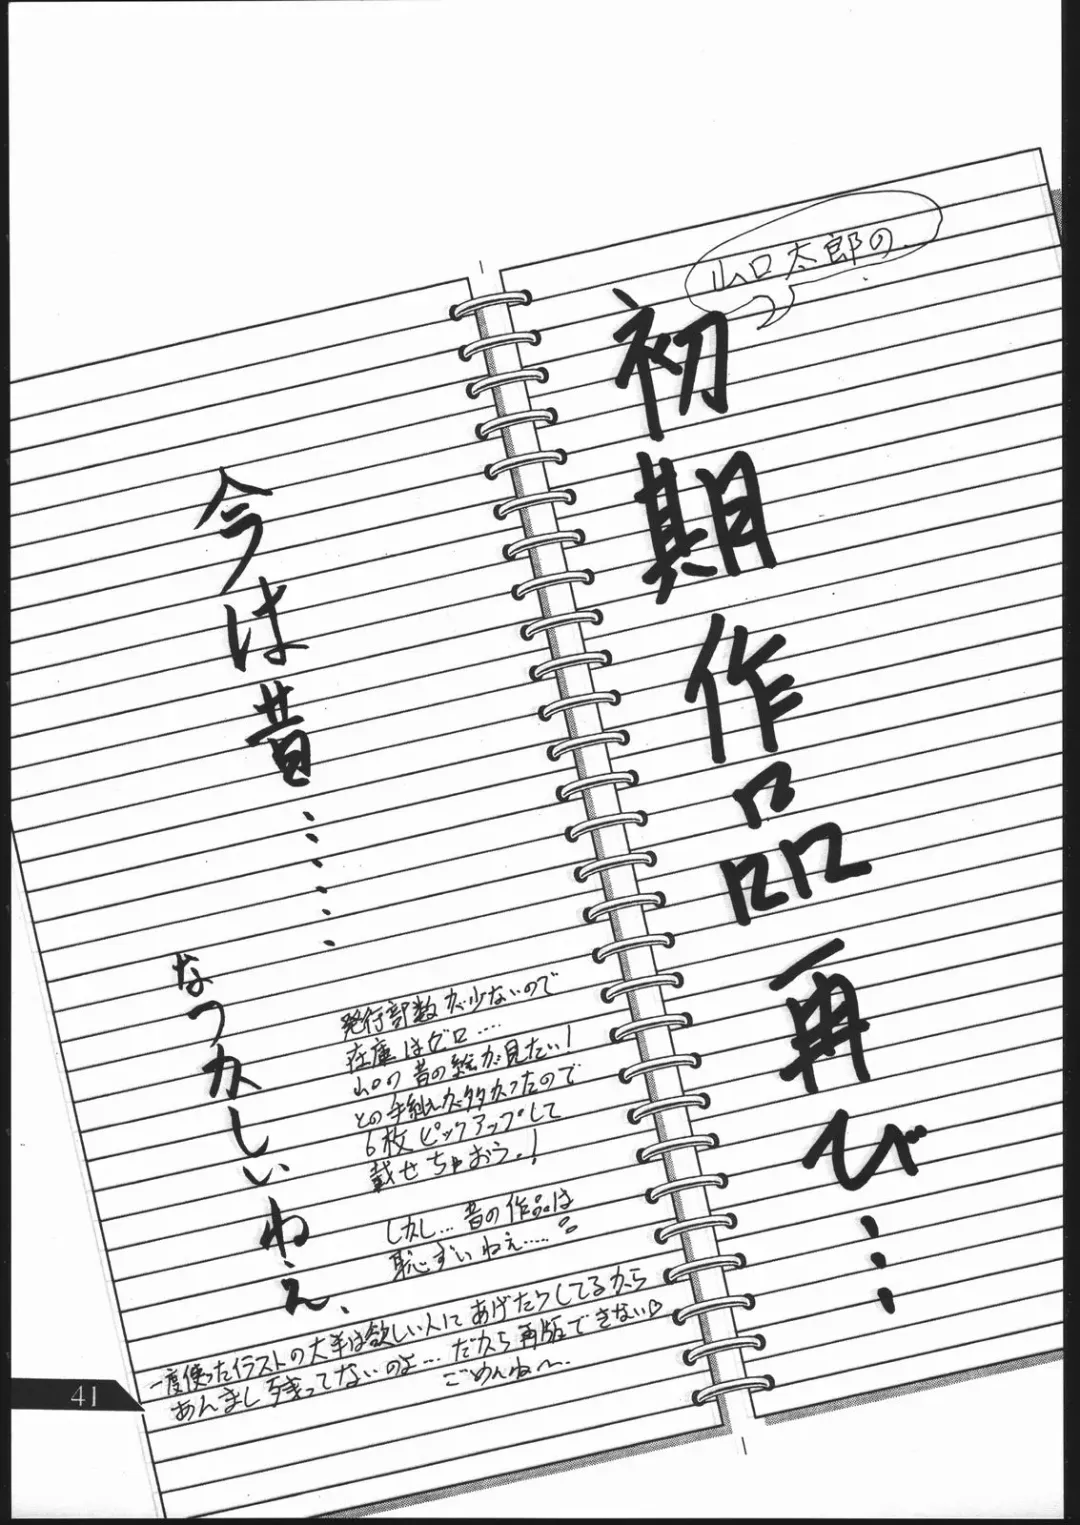 山口太郎の
初期作品再び…
今は昔……
なつかしいねぇ、
発行部数が少ないので
在庫はゼロ……
山口の昔の絵が見たい！
との手紙が多かったので
6枚ピックアップして
載せちゃおう！
しかし…昔の作品は
恥ずいねえ……
一度使ったイラストの大半は欲しい人にあげたりしてるから
あんまし残ってないのよ…だから再版できない♡
ごめんね〜、
41